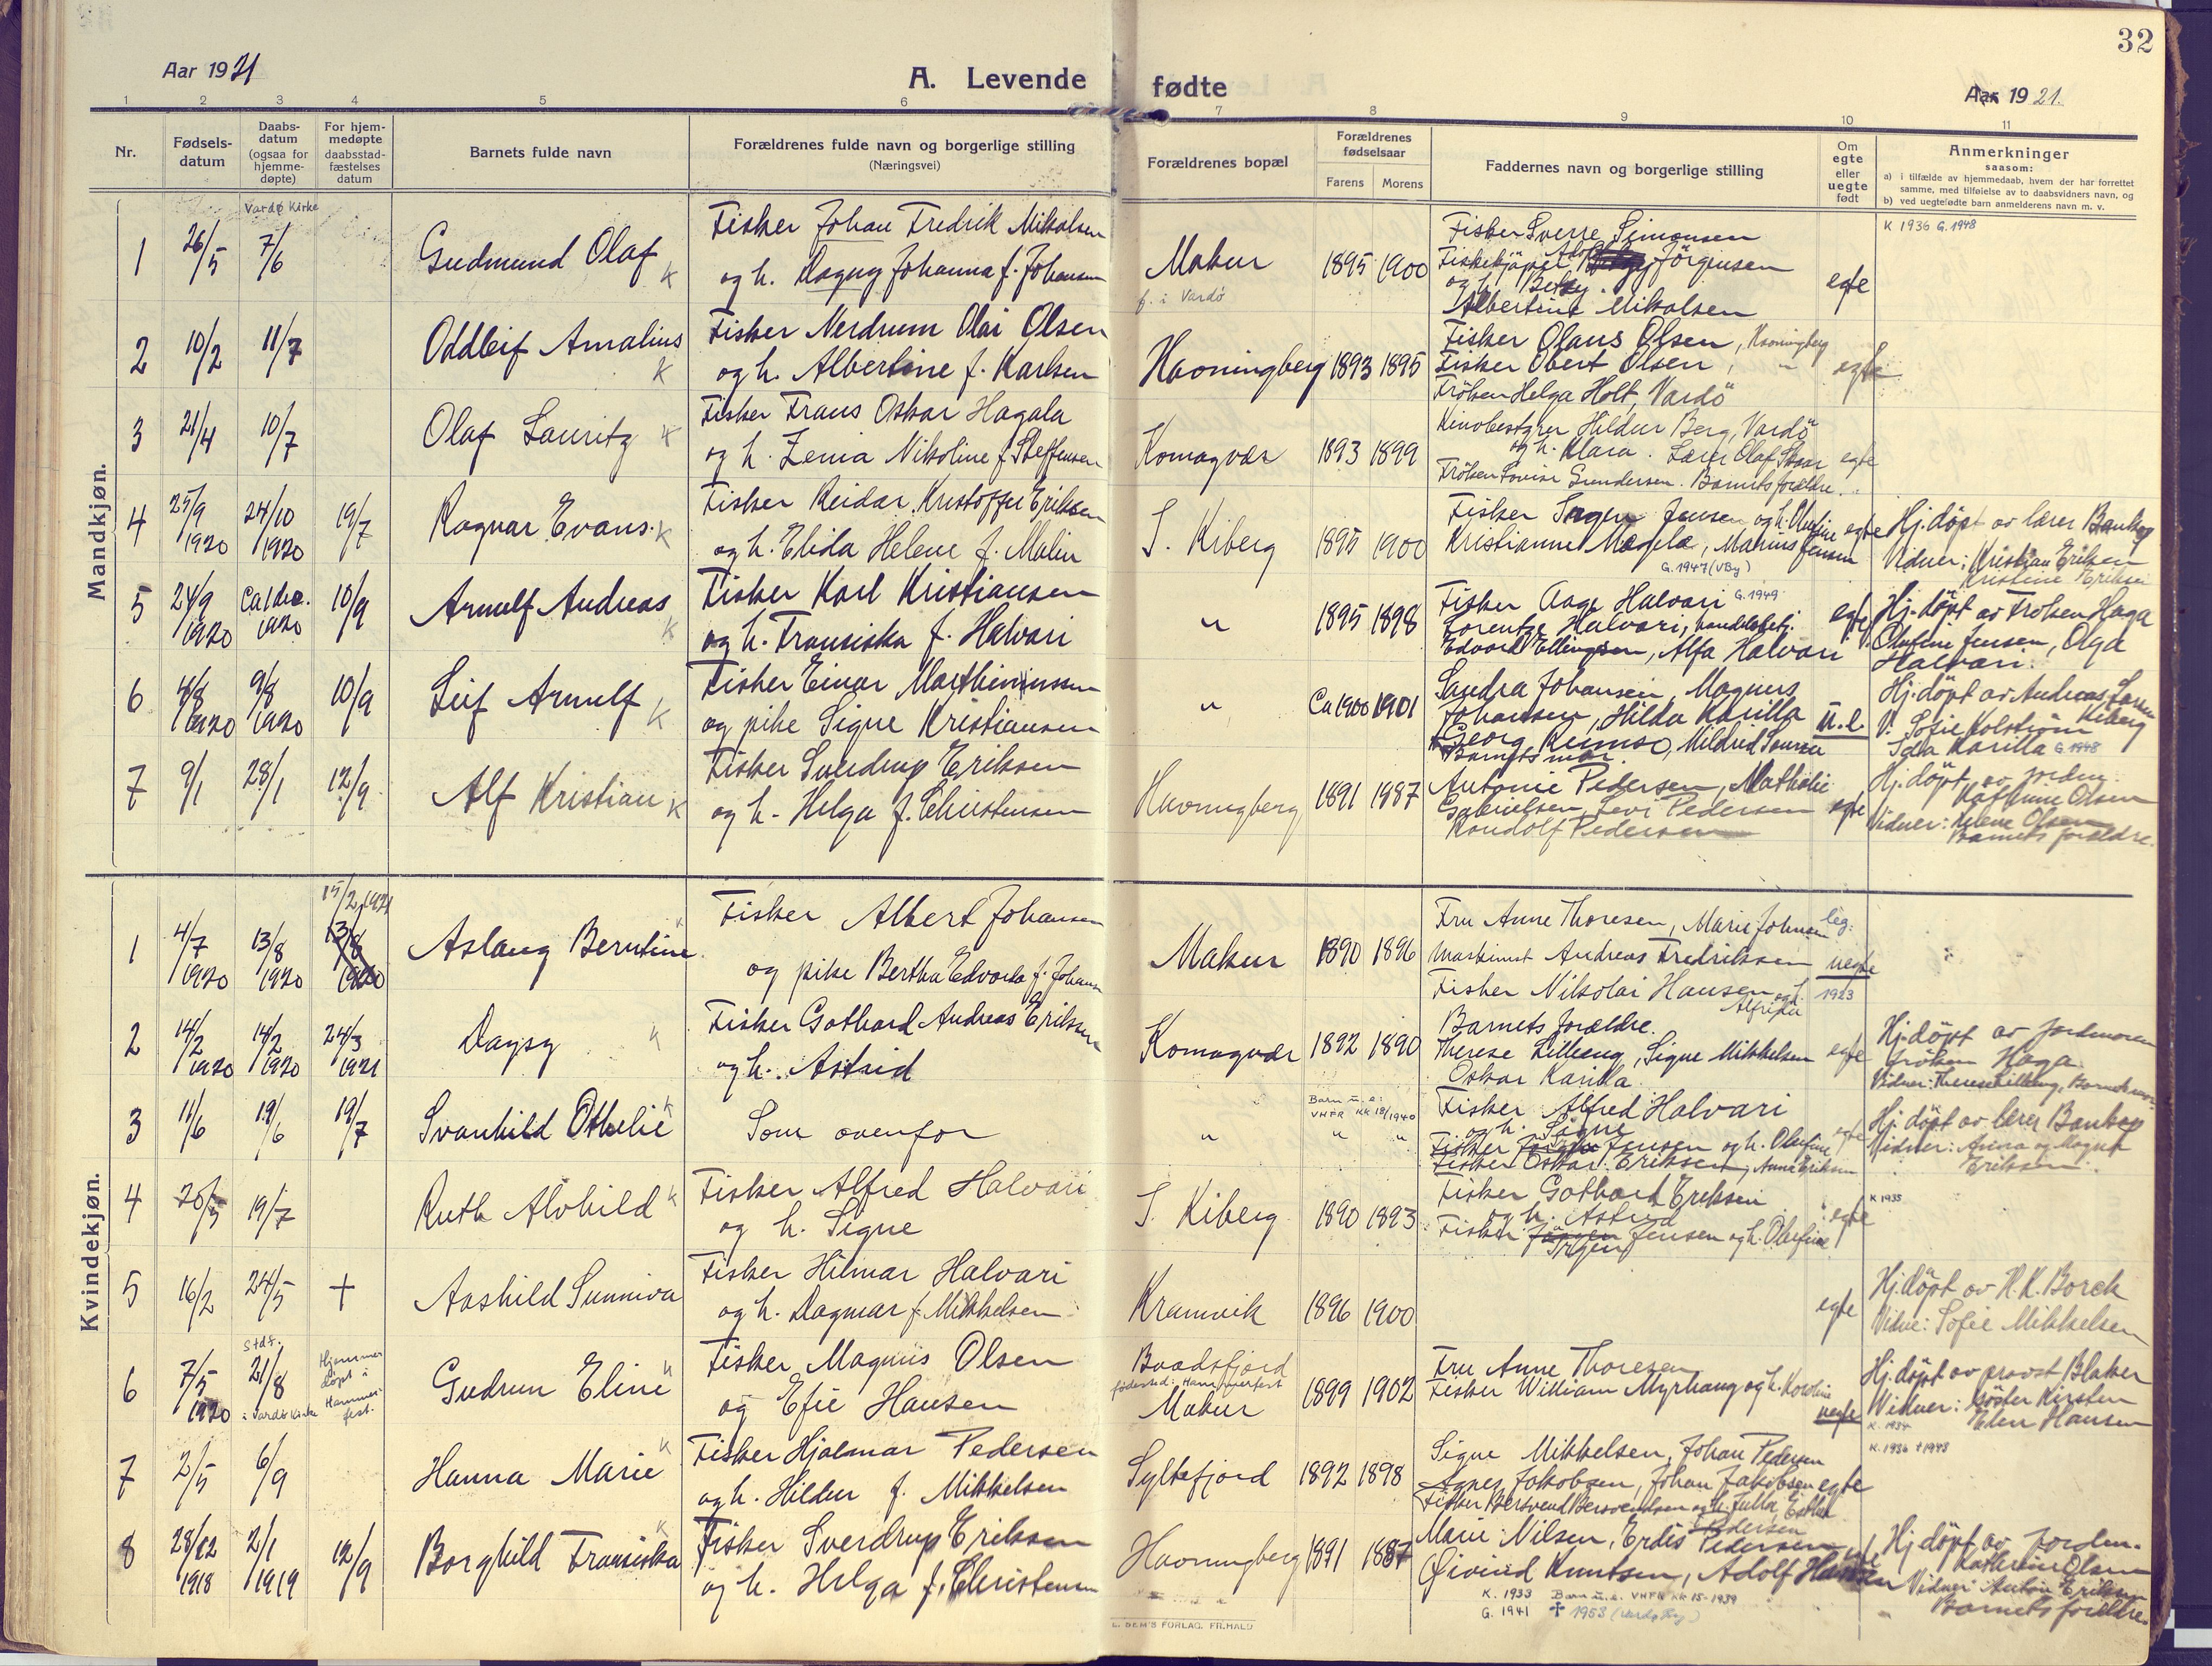 Aar 1921
A. Levende fødte
Aar 1921.
32
1 2 3 4 5 6 7 8 9 10 11
Nr.
Fødsels-
datum
Daabs-
datum
(ogsaa for
hjemme-
døpte)
For hjem-
medøpte
daabsstad-
fæstelses
datum
Barnets fulde navn
Forældrenes fulde navn og borgerlige stilling
(Næringsvei)
Forældrenes bopæl
Forældrenes
fødselsaar
Farens Morens
Faddernes navn og borgerlige stilling
Om
egte
eller
uegte
født
Anmerkninger
saasom:
a) i tilfælde av hjemmedaab, hvem der har forrettet
samme, med tilføielse av to daabsvidners navn, og
b) ved uegtefødte barn anmelderens navn m. v.
Mandkjøn.
Vardø Kirke
1 26/5 7/6 Gudmund Olaf K
Fisker Johan Fredrik Mikalsen
og h. Dagny Johanna f. Johansen
Makur
f. i Vardø
1895 1900
Fisker Sverre Simonsen
Fiskekjøper Adolf Jörgensen
og h. Betzy.
Albertine Mikalsen
egte
K 1936 G. 1948
2 10/2 11/7 Oddleif Amalius K
Fisker Nerdrum Olai Olsen
og h. Albertine f. Karlsen
Havningberg 1893 1895
Fisker Olaus Olsen, Havningberg
Fisker Obert Olsen, "
Fröken Helga Holt, Vardö
egte
3 21/4 10/7 Olaf Lauritz K
Fisker Frans Oskar Hagala
og h. Zenia Nikoline f. Steffensen
Komagvær 1893 1899
Kinobestyrer Hildur Berg, Vardö
og h. Klara. Lærer Olaf Skaar
Fröken Lovise Gundersen. Barnets forældre.
egte
4 25/9 1920 24/10 1920 19/7 Ragnar Evans. K
Fisker Reidar Kristoffer Eriksen
og h. Elida Helene f. Malin
S. Kiberg 1895 1900
Fisker Jensen og h. Olufine
Kristianne Magela, Marius Jensen
G. 1947 (VBy)
egte
Hj. döpt av lærer Bankop
Vidner: Kristian Eriksen
Kristine Eriksen
5 24/9 1920 Ca 1 dec. 1920 10/9 Arnulf Andreas K
Fisker Karl Kristiansen
og h. Fransiska f. Halvari
" 1895 1898
Fisker Aage Halvari G. 1949
Lorentze Halvari, handelsbetj.
Edvard Ellingsen, Alfa Halvari
egte
Hj. döpt av Fröken Haga
V. Olufine Jensen, Olga
Halvari.
6 4/8 1920 9/8 1920 10/9 Leif Arnulf K
Fisker Einar Marthinussen
og pike Signe Kristiansen
" Ca 1900 1901
Sandra Johansen, Magnus
Johansen, Hilda Karilla
Georg Rimso, Mildred
Barnets mor.
U.e.
Hj. döpt av Andreas
Kiberg
V. Sofie Kolström
Ida Karilla G. 1948
7 9/1 28/1 12/9 Alf Kristian K
Fisker Sverdrup Eriksen
og h. Helga f. Christensen
Havningberg 1891 1887
Antonie Pedersen, Mathilie
Gabrielsen, Levi Pedersen
Randolf Pedersen
egte
Hj. döpt av jordm.
Kathrine Olsen
Vidner: Helene Olsen
Barnets forældre.
Kvindekjøn.
15/2 1921
1 4/7 1920 13/8 1920 13/8 1920 Aslaug Berntine K
Fisker Albert Johansen
og pike Bertha Edvarda f. Johansen
Makur 1890 1896
Fru Anne Thoresen, Marie Johnsen
Maskinist Andreas Fredriksen
Fisker Nikolai Hansen og h.
Alfrida
leg:
uegte
1923
2 14/2 1920 14/2 1920 24/3 1921 Dagny K
Fisker Gothard Andreas Eriksen
og h. Astrid
Komagvær 1892 1890
Barnets forældre.
Therese Lilleeng, Signe Mikkelsen
Oskar Karilla.
egte
Hj. döpt av jordmoren
fröken Haga.
Vidner: Therese Lilleeng, Barnets mor.
3 11/6 19/6 19/7 Svanhild Othelie K
Som ovenfor
" " "
Barn u. e.:
VHFR KK 18/1940
Fisker Alfred Halvari
og h. Signe
Fisker Jensen og h. Olufine
Fisker Oskar Eriksen, Anna Eriksen
egte
Hj. döpt av lærer Bankop
Vidner: Anna og Magnus
Eriksen.
4 20/5 19/7 Ruth Alvhild K
Fisker Alfred Halvari
og h. Signe
S. Kiberg 1890 1893
Fisker Gothard Eriksen
og h. Astrid
Fisker Jörgen Jensen og h. Olufine
egte
K 1935
5 16/2 24/5 † Aashild Sunniva
Fisker Hilmar Halvari
og h. Dagmar f. Mikkelsen
Kramvik 1896 1900
egte
Hj. döpt av H. K. Borch
Vidne: Sofie Mikkelsen
6 7/5 1920 Stdf. 21/8 i Vardö Kirke
Hjemme-
döpt i
Hammer-
fest.
Gudrun Eline K
Fisker Magnus Olsen
og Efie Hansen
Baadsfjord
fødested: Hammerfest
Makur
1899 1902
Fru Anne Thoresen
Fisker William Myrhaug og h. Karoline
uegte
Hj. döpt av provst Blaker
Vidner: søster Kirsten
Elen Hansen
7 2/5 6/9 Hanna Marie K
Fisker Hjalmar Pedersen
og h. Hildur f. Mikkelsen
Syltefjord 1892 1898
Signe Mikkelsen, Johan Pedersen
Agnes Jakobsen, Johan Jakobsen
Fisker Bersvend Bersvendsen og h. Julla, Esther
Pedersen
egte
K. 1936 † 1948
8 28/12 1918 2/1 1919 12/9 Borghild Fransiska K
Fisker Sverdrup Eriksen
og h. Helga f. Christensen
Havningberg 1891 1887
Marie Nilsen, Erdis Pedersen
Øivind Knutsen, Adolf Hansen
K. 1933 Barn u. e. VHFR KK 15-1939
G. 1941 † 1953
Hj. döpt av Jordm.
Kathrine Olsen
Vidner: Anton Eriksen
Barnets forældre.
E. SEM'S FORLAG, FR.HALD